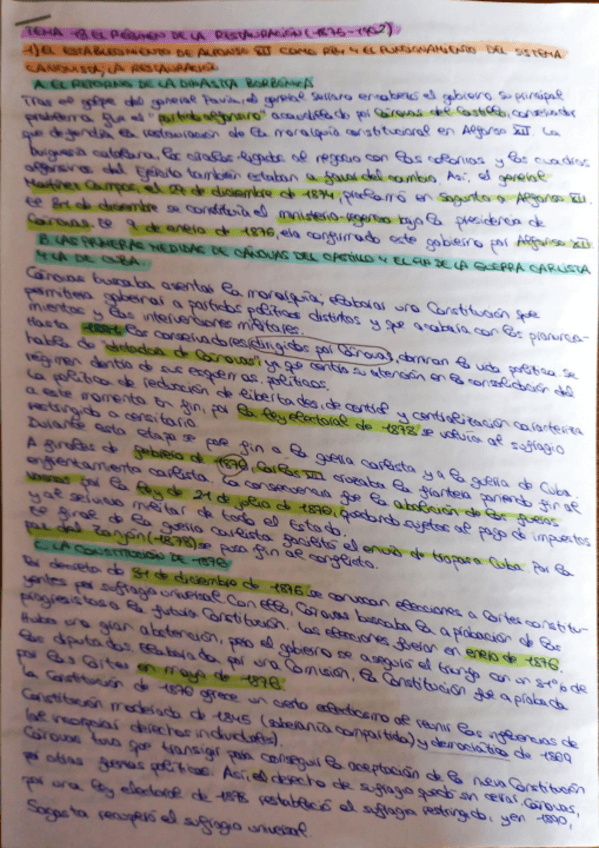 TEMA 13 EL RÉGIMEN DE LA RESTAURACIÓN (1875-1902)
1) EL ESTABLECIMIENTO DE ALFONSO XII COMO REY Y EL FUNCIONAMIENTO DEL SISTEMA
CANOVISTA, LA RESTAURACIÓN
A. EL RETORNO DE LA DINASTÍA BORBÓNICA
Tras el golpe del general Pavía, el general Serrano encabezó el gobierno. Su principal
problema fue el "partido alfonsino" acaudillado por Cánovas del Castillo, conservador
que defendía la restauración de la monarquía constitucional en Alfonso XII. La
burguesía catalana, los círculos ligados al negocio con las colonias y los cuadros
alfonsinos del Ejército también estaban a favor del cambio. Así, el general
Martínez Campos, el 29 de diciembre de 1874, proclamó en Sagunto a Alfonso XII.
El 31 de diciembre se constituía el ministerio-regencia bajo la presidencia de
Cánovas. El 9 de enero de 1875, era confirmado este gobierno por Alfonso XII
B. LAS PRIMERAS MEDIDAS DE CÁNOVAS DEL CASTILLO Y EL FIN DE LA GUERRA CARLISTA
Y LA DE CUBA.
Cánovas buscaba asentar la monarquía; elaborar una Constitución que
permitiera gobernar a partidos políticos distintos y que acabaría con los pronuncia-
mientos y las intervenciones militares.
Hasta 1881, los conservadores (dirigidos por Cánovas), dominan la vida política. Se
habla de "dictadura de Cánovas", ya que centra su atención en la consolidación del
régimen dentro de sus esquemas políticos.
La política de reducción de libertades, de control y centralización caracteriza
a este momento. En fin, por la ley electoral de 1878 se volvía al sufragio
restringido o censitario.
Durante esta etapa se pone fin a la guerra carlista y a la guerra de Cuba.
A finales de febrero de 1876, Carlos VII cruzaba la frontera poniendo fin al
enfrentamiento carlista. La consecuencia fue la abolición de los fueros
vascos por la ley de 21 de julio de 1876, quedando sujetos al pago de impuestos
y al servicio militar de todo el Estado.
El final de la guerra carlista facilitó el envío de tropas a Cuba. Por la
paz del Zanjón (1878) se puso fin al conflicto.
C. LA CONSTITUCIÓN DE 1876
Por decreto de 31 de diciembre de 1875, se convocan elecciones a Cortes constitu-
yentes por sufragio universal. Con ello, Cánovas buscaba la aprobación de los
progresistas a la futura Constitución. Las elecciones fueron en enero de 1876.
Hubo una gran abstención, pero el gobierno se aseguró el triunfo con un 81% de
los diputados. Elaborada por una Comisión, la Constitución fue aprobada
por las Cortes en mayo de 1876.
La Constitución de 1876 ofrece un cierto eclecticismo al reunir las influencias de
Constitución moderada de 1845 (soberanía compartida) y democrática de 1869
(al incorporar derechos individuales).
Cánovas tuvo que transigir para conseguir la aceptación de la nueva Constitución
por otras fuerzas políticas. Así, el derecho de sufragio quedó sin cerrar. Cánovas,
por una ley electoral de 1878 restableció el sufragio restringido, y en 1890,
Sagasta recuperó el sufragio universal.